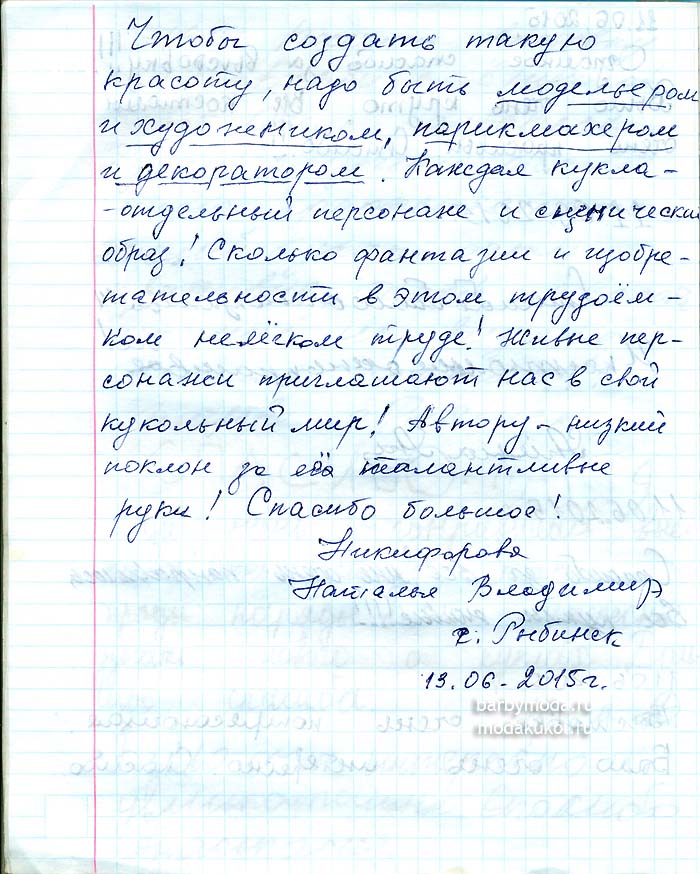 Чтобы создать такую
красоту, надо быть модельером
и художенником, парикмахером
и декоратором. Каждая кукла -
- отдельный персонаж и сценический
образ! Сколько фантазии и изобре-
тательности в этом трудоём-
ком нелёгком труде! Живые пер-
сонажи приглашают нас в свой
кукольный мир! Автору - низкий
поклон за её талантливые
руки! Спасибо большое!
Никифорова
Наталья Владимир
г. Рыбинск
13.06-2015г.
barbymoda.ru
modakukol.ru